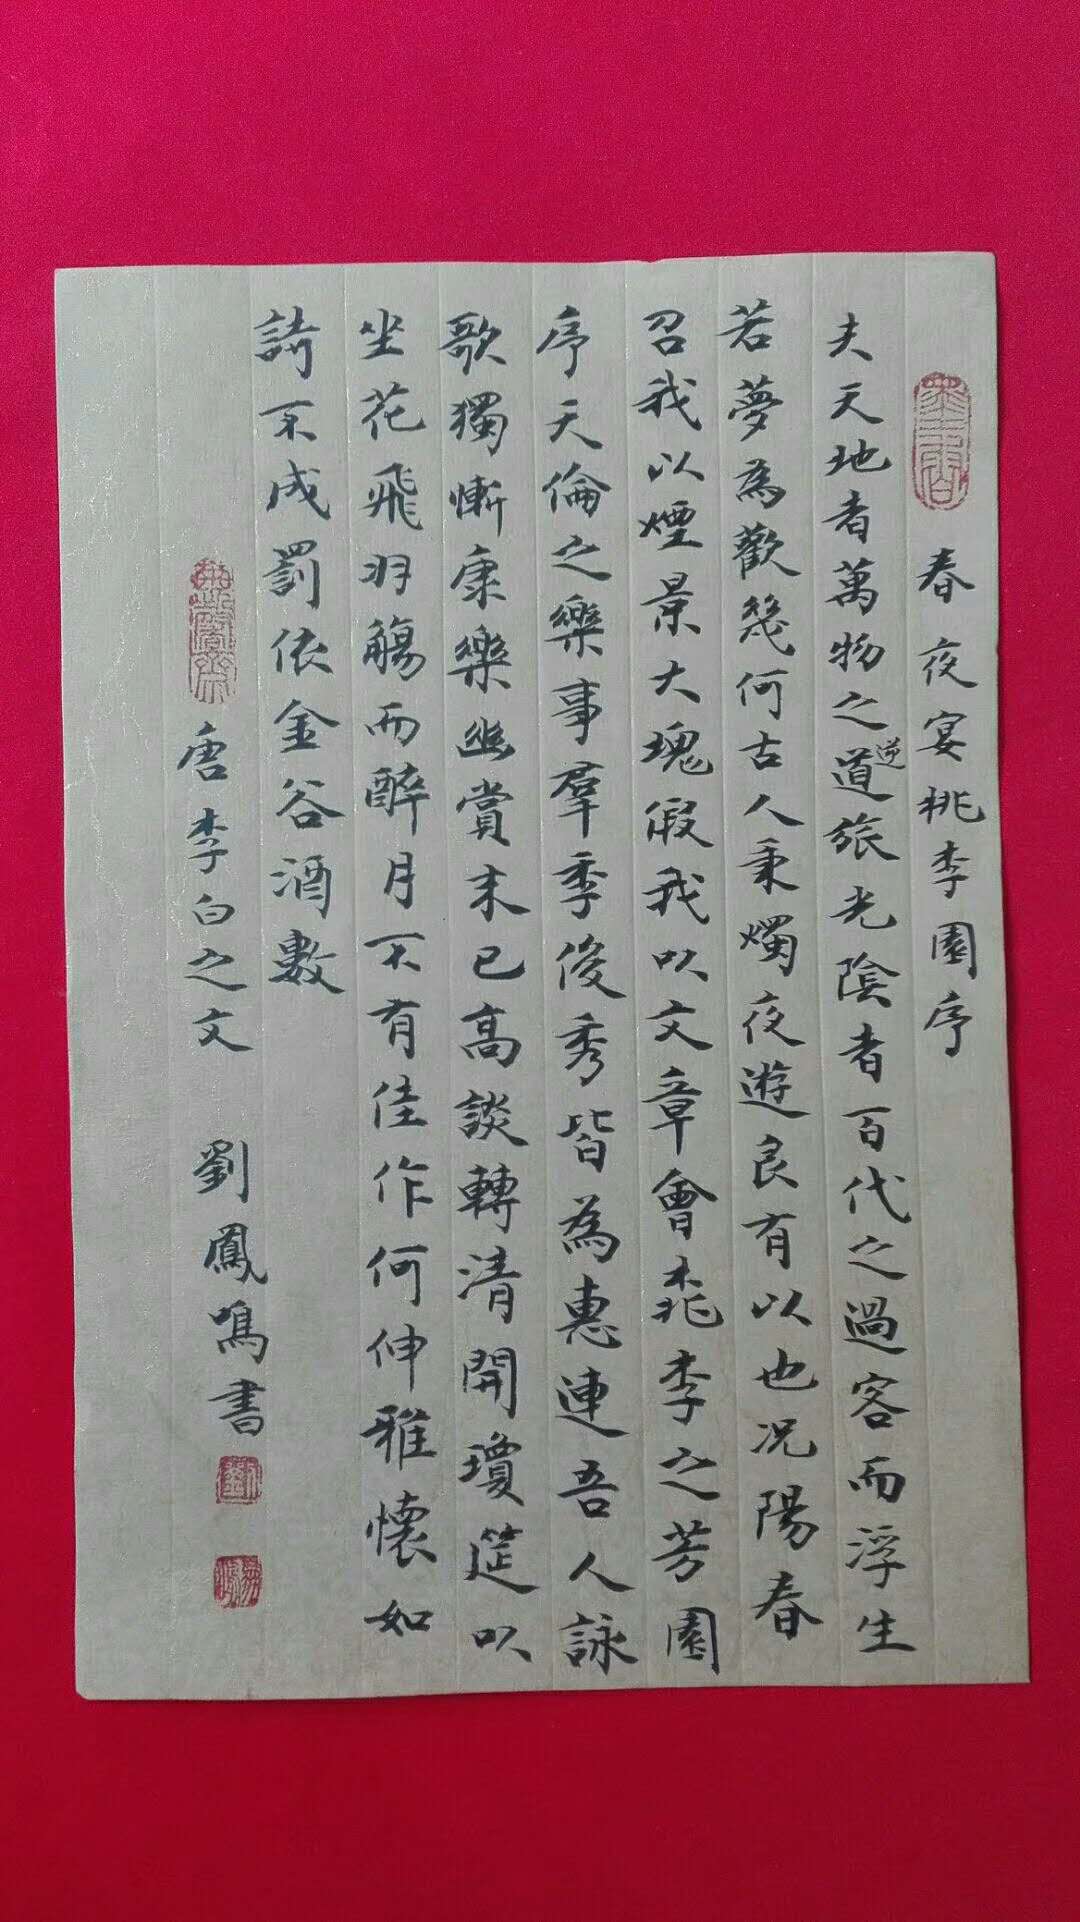 春夜宴桃李園序
夫天地者萬物之道逆旅光陰者百代之過客而浮生
若夢為歡幾何古人秉燭夜遊良有以也况陽春
召我以煙景大塊假我以文章會桃李之芳園
序天倫之樂事羣季俊秀皆為惠連吾人詠
歌獨慚康樂幽賞未已高談轉清開瓊筵以
坐花飛羽觴而醉月不有佳作何伸雅懷如
詩不成罰依金谷酒數
唐李白之文 劉鳳鳴書